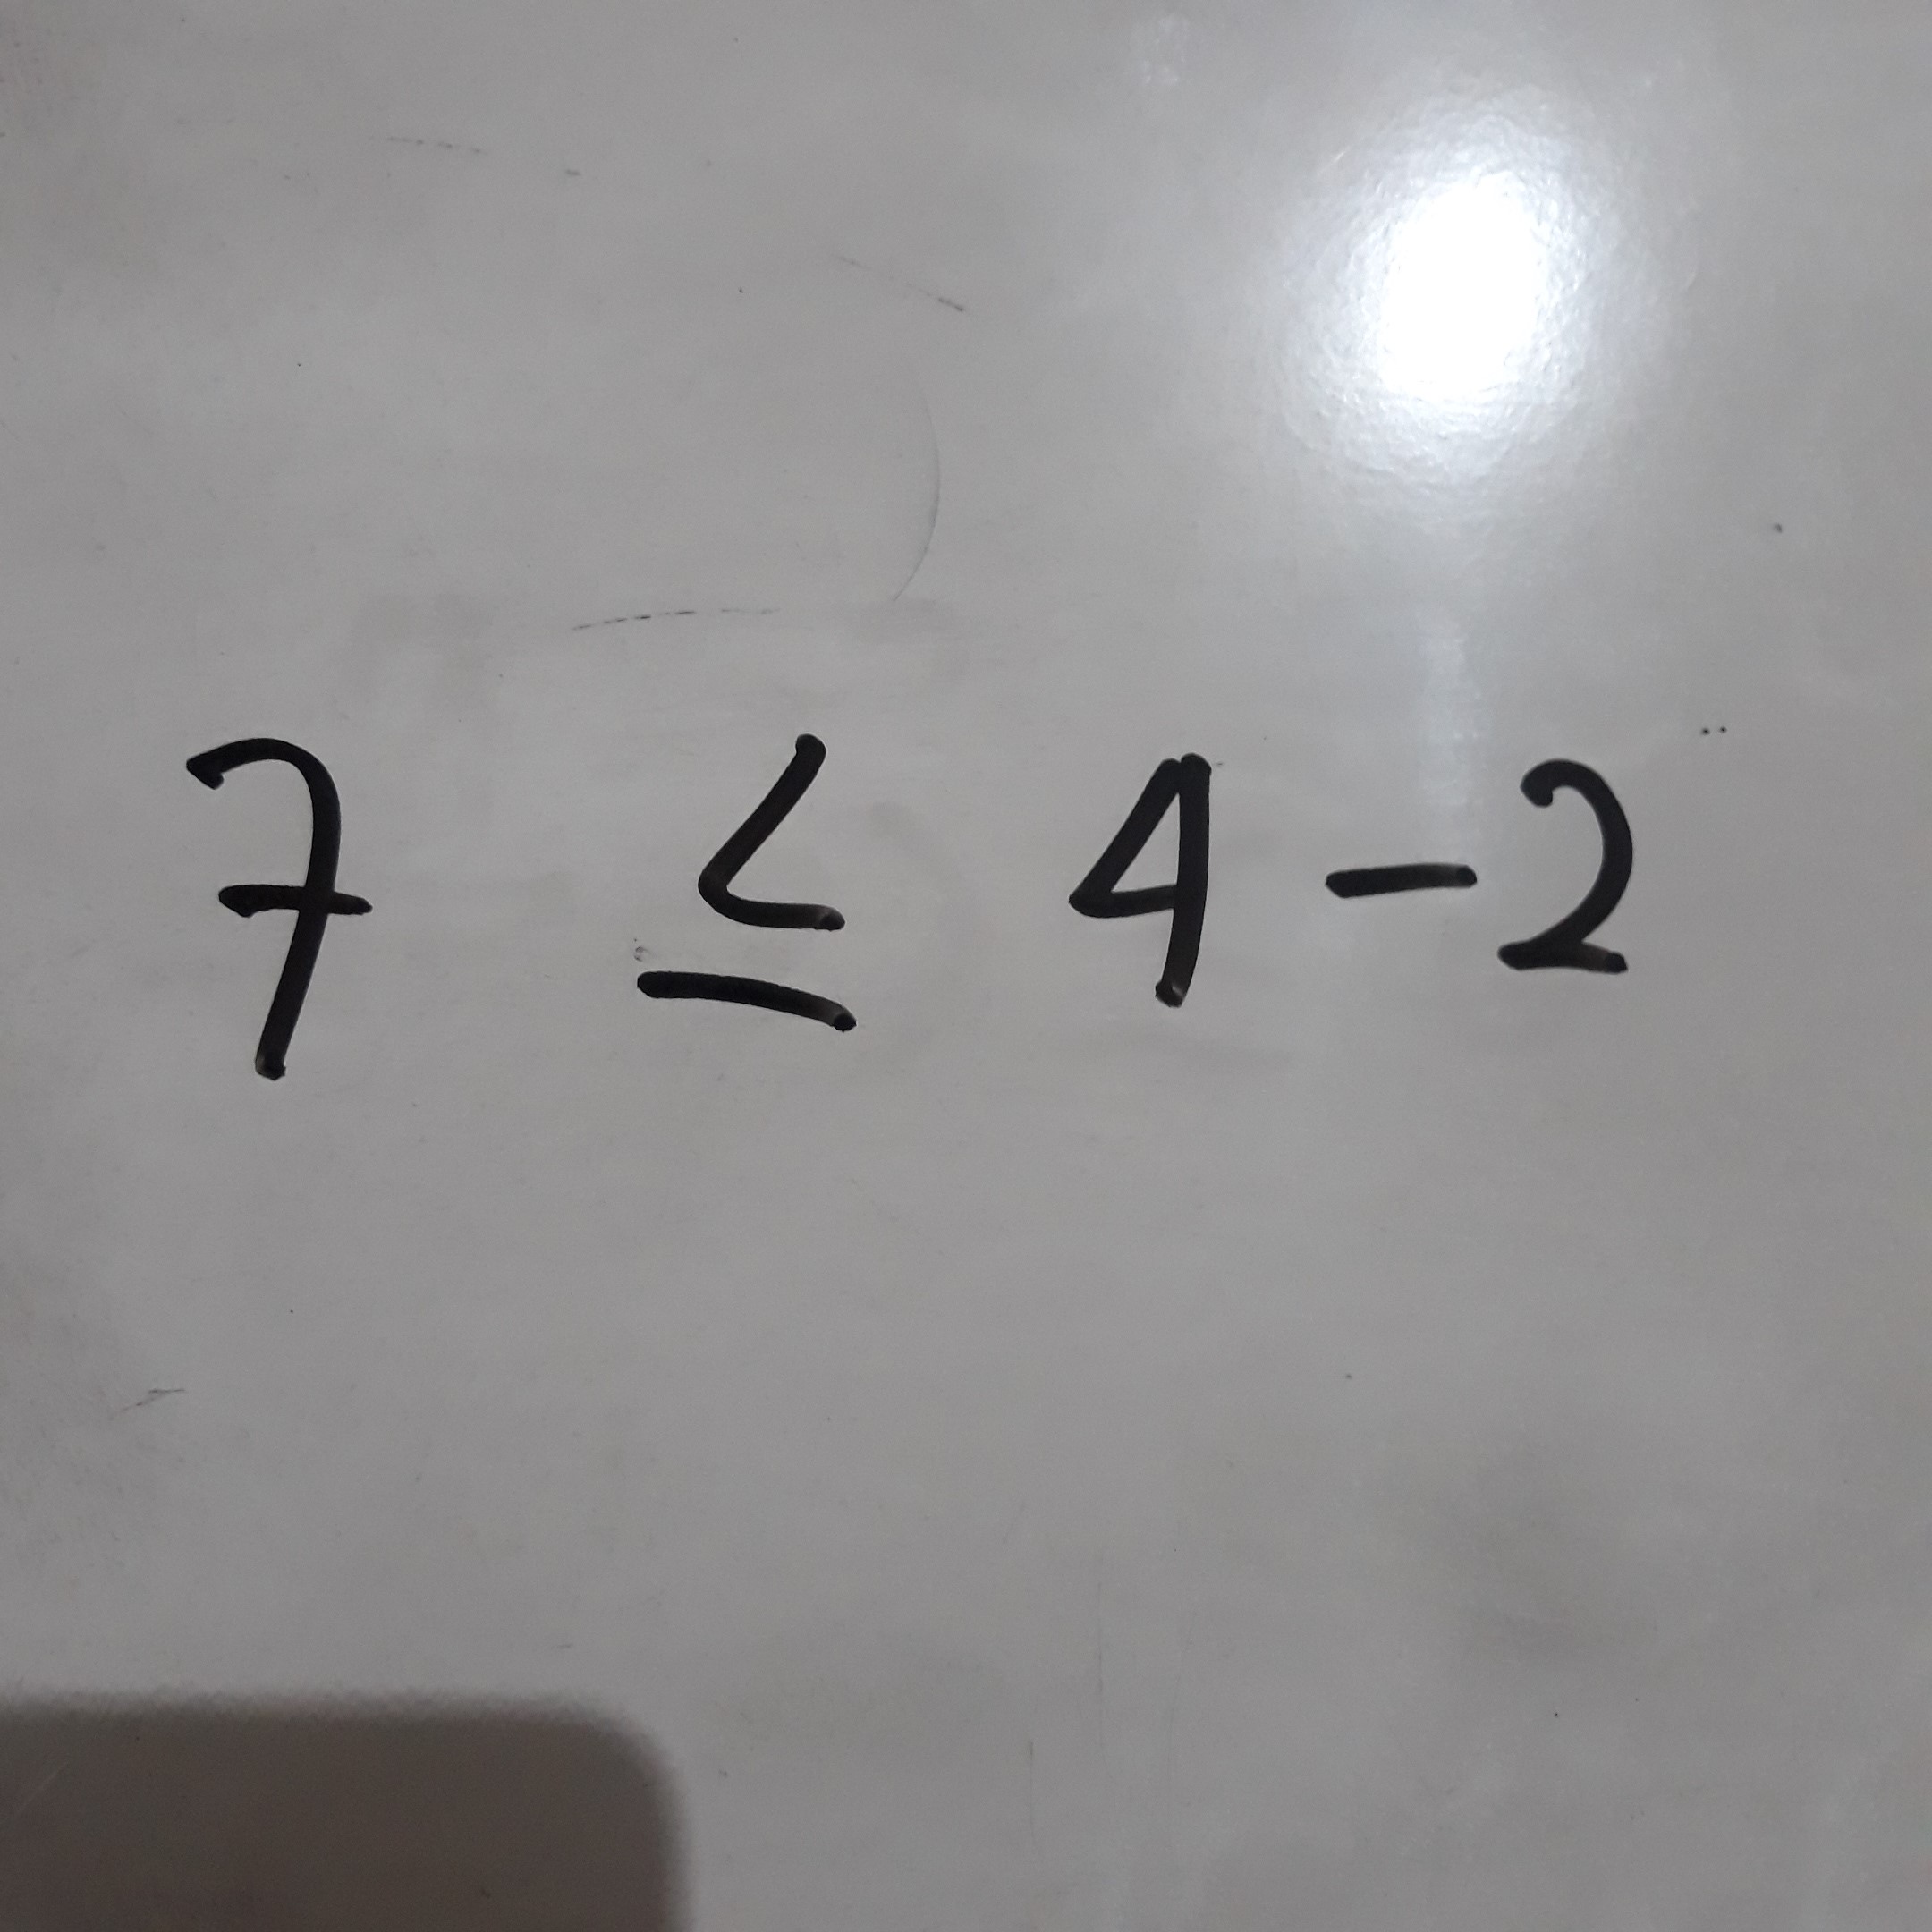 7 ≤ 4 - 2